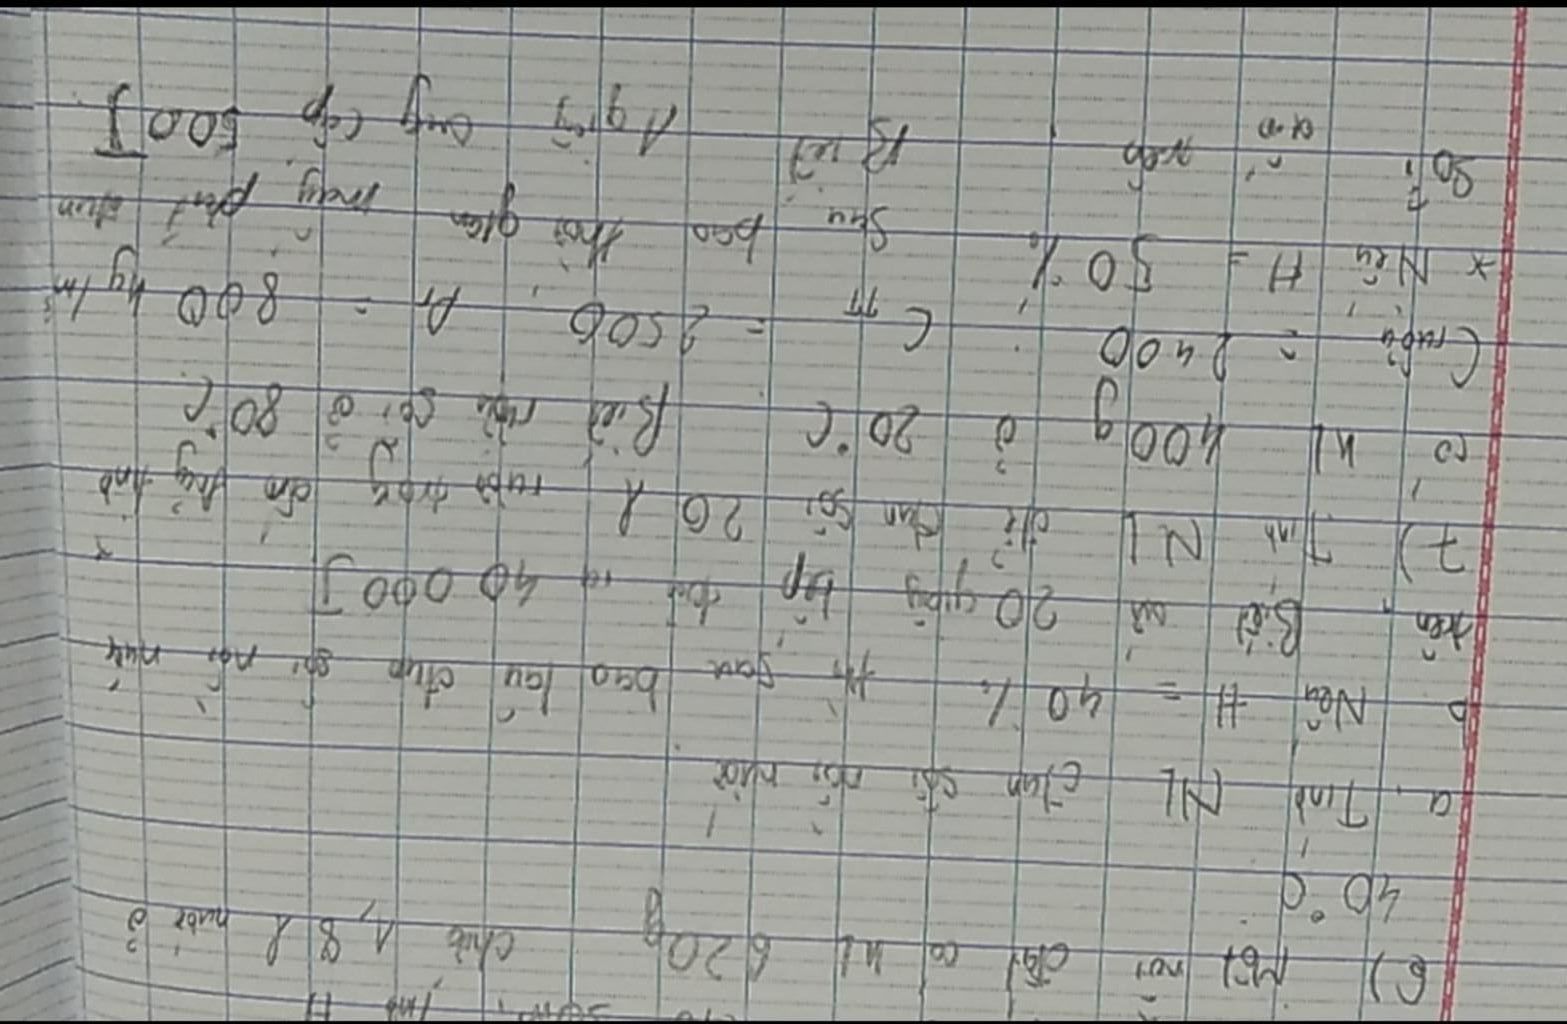 6) Một nồi đất có kl 620g chứa 1,8 l nước ở
40°C
a. Tính NL đun sôi nồi nước
b Nếu H = 40% thì sau bao lâu đun sôi nồi nước
trên. Biết cứ 20 giây bếp toả ra 40 000 J
7) Tính NL để đun sôi 20 l rượu trong ấm
có kl 400g ở 20°C Biết rượu sôi ở 80°C
C rượu = 2400 C = 2500, D = 800 kg/m³
* Nếu H = 50% Sau bao thời gian máy phát đun
sôi ấm trên Biết 1 giây cấp 500J